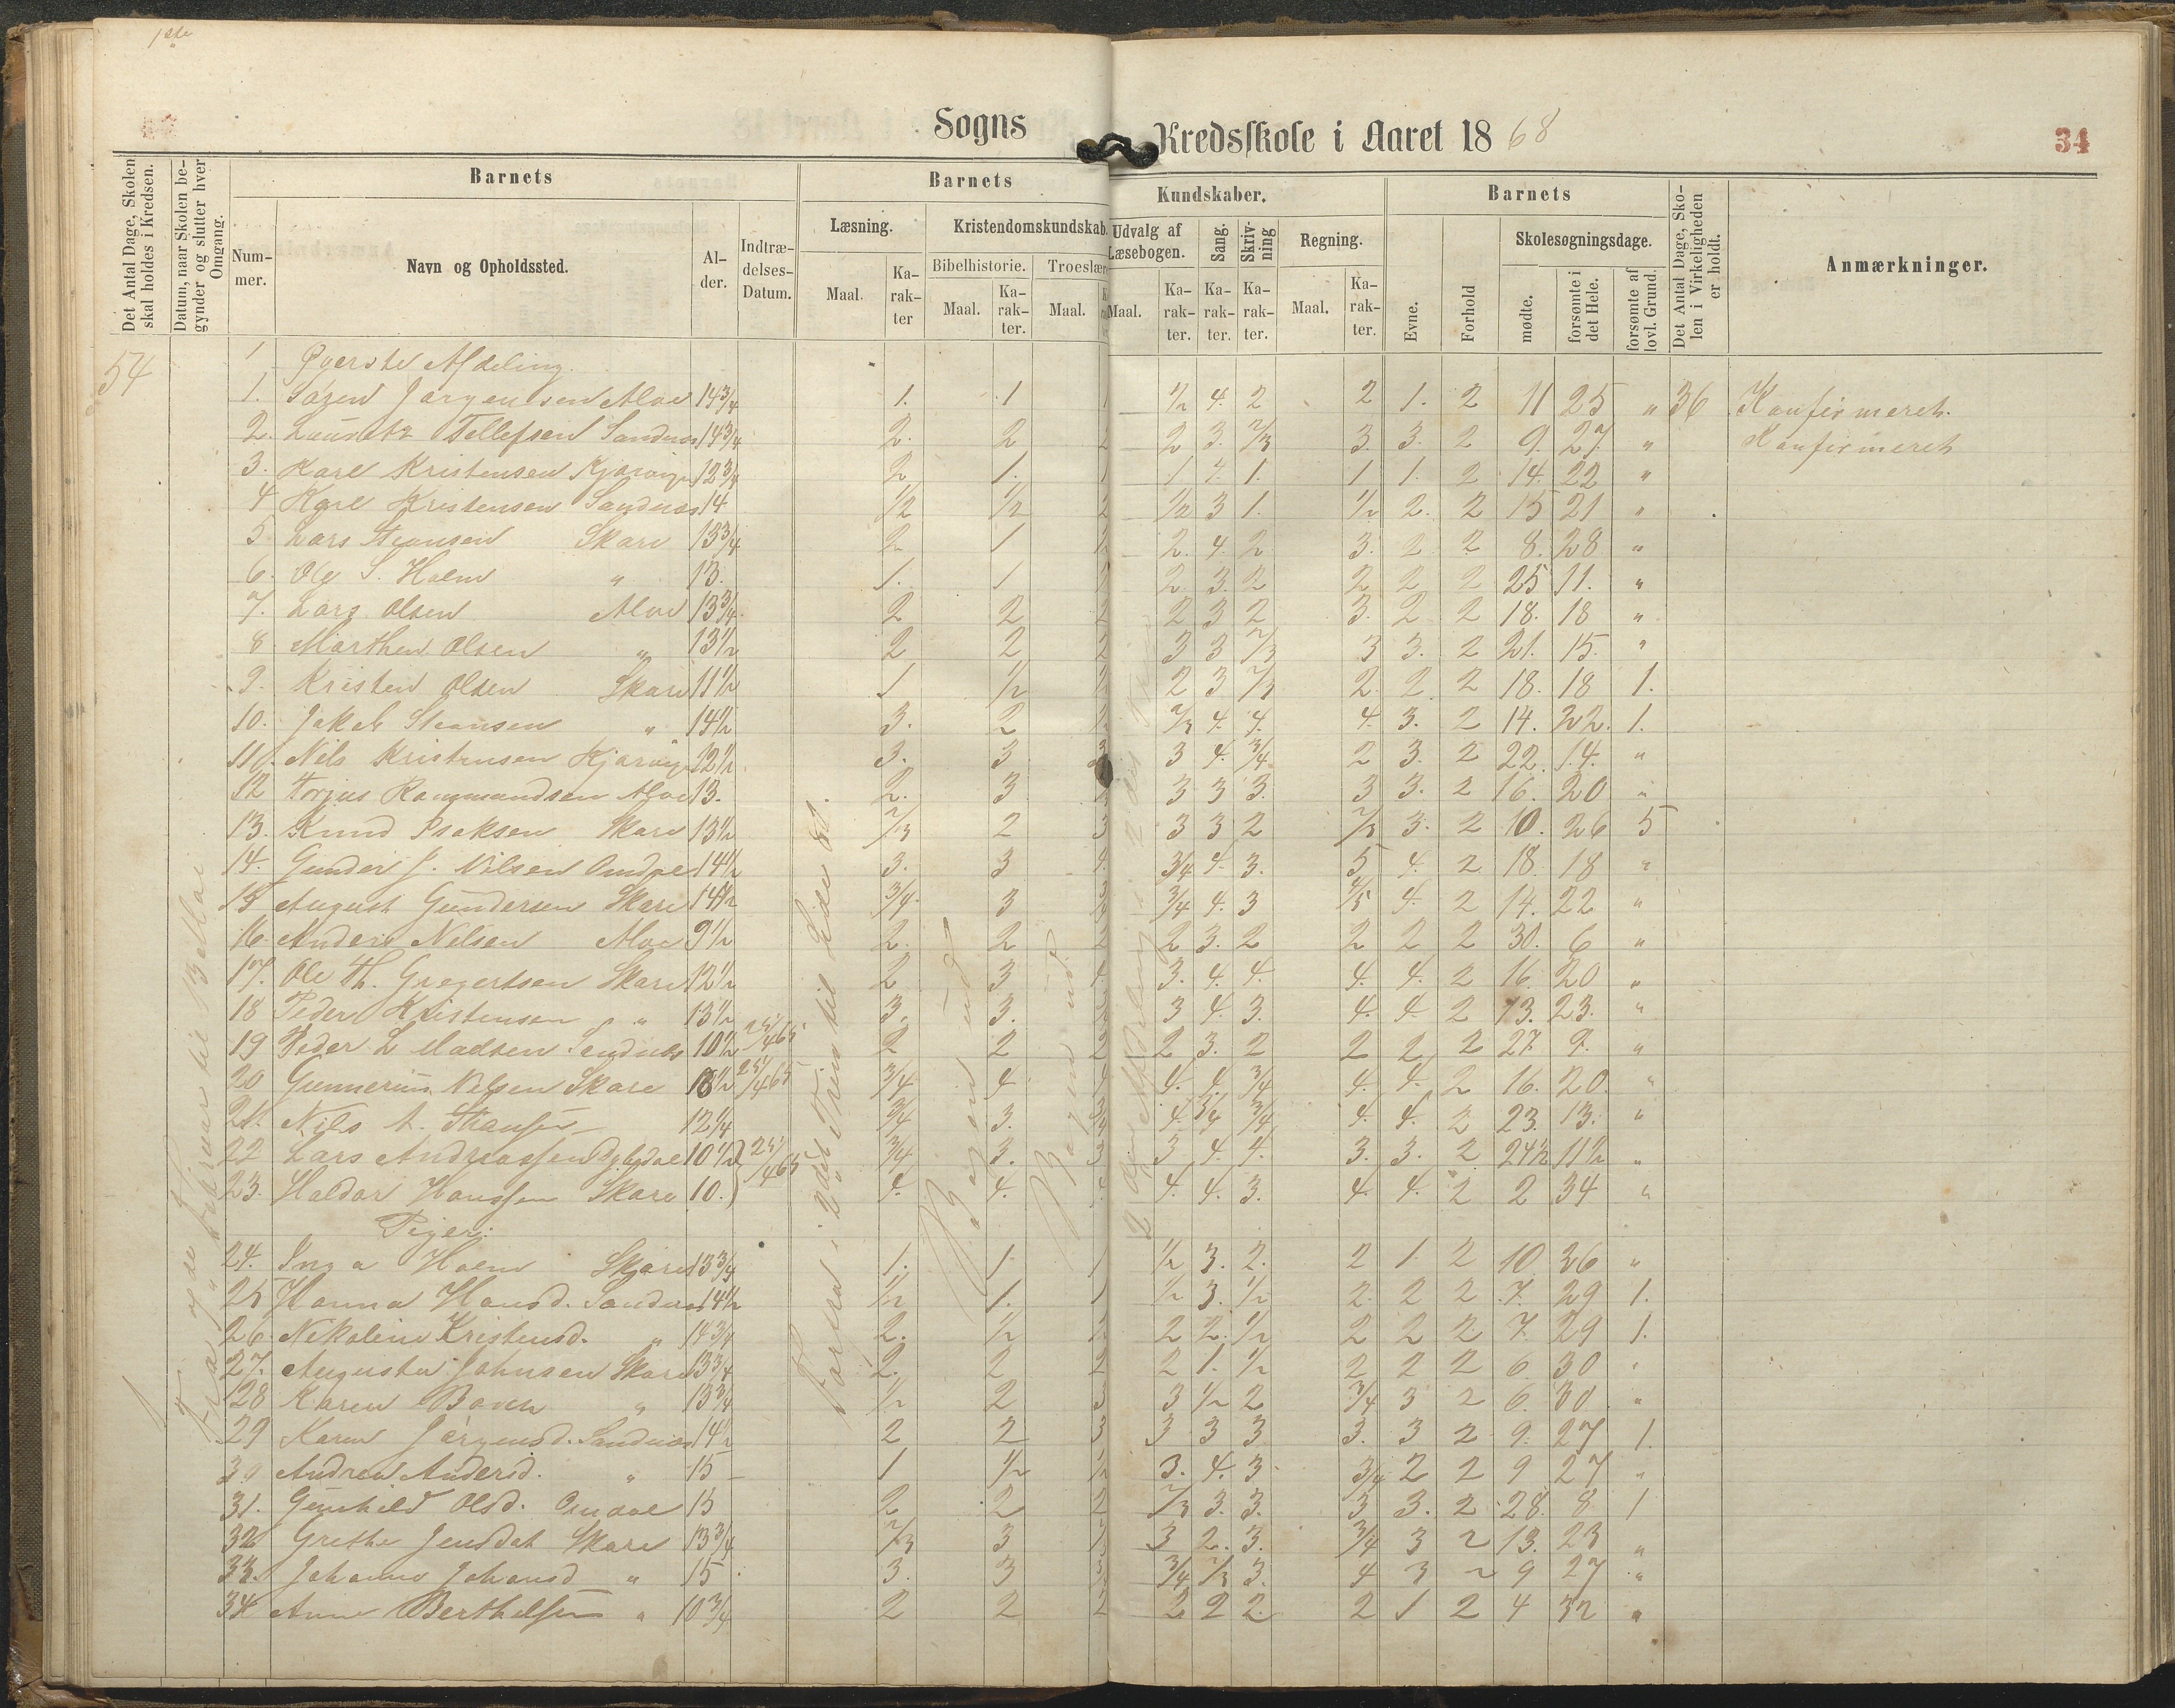 1ste
Sogns Kredsskole i Aaret 1868
34
Det Antal Dage, Skolen skal holdes i Kredsen.
Datum, naar Skolen begynder og slutter hver Omgang.
Barnets
Nummer.
Navn og Opholdssted.
Alder.
Indtrædelses-Datum.
Barnets Kundskaber.
Læsning.
Maal.
Karakter
Kristendomskundskab.
Bibelhistorie.
Maal.
Karakter.
Troeslære
Maal.
Udvalg af Læsebogen.
Maal.
Karakter.
Sang.
Karakter.
Skrivning
Karakter.
Regning.
Maal.
Karakter.
Barnets
Evne.
Forhold
Skolesøgningsdage.
mødte.
forsømte i det Hele.
forsømte af lovl. Grund.
Det Antal Dage, Skolen i Virkeligheden er holdt.
Anmærkninger.
54
Øverste Afdeling.
1. Søren Jørgensen Aloe 14 3/4 1. 1 1 1/2 4. 2 2 1. 2 11 25 " 36 Konfirmeret.
2. Lauritz Tellefsen Sandnæs 14 3/4 2. 2 2 2 3. 2/3 3. 3. 2 9. 27. " Konfirmeret
3. Karl Kristensen 12 3/4 2 1. 1 1 4. 1. 1 1. 2 14. 22 "
4 Karl Kristensen Sandnæs 14 1/2 1/2 2 1/2 3 1. 1/2 2. 2 15 21 "
5 Lars Steansen Skare 13 3/4 2 1 2 2. 4. 2 3. 2 2 8. 28 "
6. Ole S. Holm " 13. 1. 1 2 2. 3. 2 2 2 2 25 11. "
7. Lars Olsen Aloe 13 3/4 2 2 2 2 3 2 3. 2 2 18. 18 "
8 Marthen Olsen " 13 1/2 2 2 2 3 3 2/3 3 3. 2 21. 15. "
9. Kristen Olsen Skare 11 1/2 1 1/2 2 3 2/3 2. 2. 2 18. 18 1.
10. Jakob Steansen " 14 1/2 3. 2 2/3 4. 4. 4. 3. 2 14. 22. 1.
11. Nils Kristensen 12 1/2 3. 3 3 3 4. 3/4 2 3. 2 22. 14. "
12 Torjus Rommundsen Aloe 13. 2. 3 3 3 3. 3 3. 2 16. 20 "
13. Knud Isaksen Skare 13 1/2 2/3 2 3 3 3 2 2/3 3. 2 10. 26 5
14. Gunder J. Nilsen 14 1/2 3. 3 4. 3/4 4. 3. 5 4. 2 18. 18 "
15 August Gundersen Skare 14 1/2 3/4. 3 3/4 4. 3 4/5 4. 2 14. 22 "
16. Anders Nilsen Aloe 9 1/2 2. 2 2 2 3. 2 2 2 2 30. 6 "
17. Ole Th. Gregertsen Skare 12 1/2 2 3 4 3. 4. 4. 4. 4. 2 16. 20 "
18 Peder Kristensen " 13 1/2 3. 3. 3 4. 3. 4. 4. 2 13. 23. "
19 Peder L Madsen Sandnæs 10 1/2 25/4 65 2 2 2 2 3. 2 2 2 2 27. 9. "
20 Gunnerius Nilsen Skare 25/4 65 3/4 4 4. 4. 3/4 4. 4. 2 16. 20. "
21. Nils A. 12 1/4 3/4 3. 4. 3/4 3/4 4. 4. 2 23. 13. "
22 Lars Andreassen 10 1/2 25/4 65 3/4 3. 3 3 4. 4. 3. 3. 2 24 1/2 11 1/2 "
23. Haldor Hanssen Skare 10. 4. 4. 4. 4. 3. 4. 4. 2 2 34 "
Piger:
24. Inga Holm Skare 13 3/4 1. 1. 1 1/2 3. 2. 2 1 2 10 26 "
25 Hanna Hansd. Sandnæs 14 1/2 1/2 1. 1 1/2 3. 1/2 2. 2 2 7. 29 1.
26. Nikoline Kristensd. " 14 3/4 2. 1/2 2 2. 1/2 2 2 2 7. 29 1.
27. Augusta Johnsen Skare 13 3/4 2. 2 2 2 1. 1/2 2 2 2 6 30 "
28 Karen " 13 3/4 1/2 2 3 3 1/2 2 3/4 3 2 6. 30. "
29 Karen Jørgensd. Sandnæs 14 1/2 2 2 3 3 3 3 3. 3 2 9. 27 1.
30 Andrea Andersd. " 15 1 1/2 1/2 3. 4. 3 3/4 2 2 9 27 "
31. Gunhild Olsd. 15 2 2 2 2/3 3. 3. 3 3. 2 28. 8 1
32 Grethe Jensdat Skare 13 3/4 2/3 3 3 2. 3. 3/4 3 2 13. 23 "
33. Johanne Johansd " 15 3. 3 3/4 2/3 3. 4 3 2 9 27 "
34 Anne Berthelsen " 10 3/4 2 2 2 2 2 2 2 1 2 4 32 "
til 13 Mai
Bogen ud
Bogen ud.